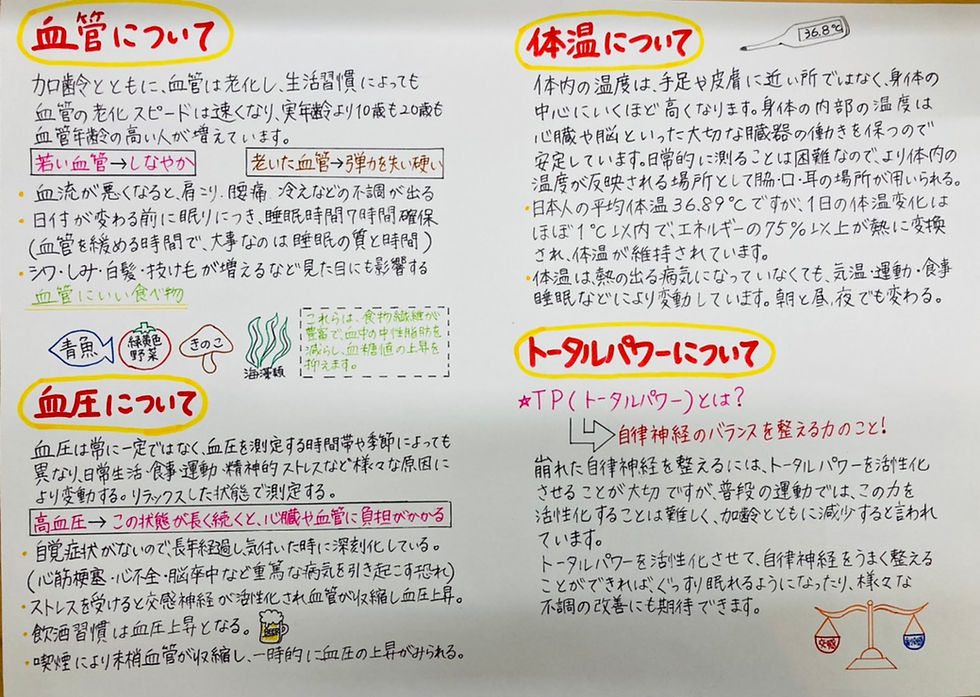 血管について
加齢とともに、血管は老化し、生活習慣によっても
血管の老化スピードは速くなり、実年齢より10歳も20歳も
血管年齢の高い人が増えています。
若い血管→しなやか
老いた血管→弾力を失い硬い
・血流が悪くなると、肩こり、腰痛、冷えなどの不調が出る
・日付が変わる前に眠りにつき、睡眠時間7時間確保
(血管を緩める時間で、大事なのは睡眠の質と時間)
・シワ・しみ・白髪・抜け毛が増えるなど見た目にも影響する
血管にいい食べ物
青魚
緑黄色
野菜
きのこ
海藻類
これらは、食物繊維が
豊富で、血中の中性脂肪を
減らし、血糖値の上昇を
抑えます。
血圧について
血圧は常に一定ではなく、血圧を測定する時間帯や季節によっても
異なり、日常生活・食事・運動・精神的ストレスなど様々な原因に
より変動する。リラックスした状態で測定する。
高血圧→この状態が長く続くと、心臓や血管に負担がかかる
・自覚症状がないので長年経過し気付いた時に深刻化している。
(心筋梗塞・心不全・脳卒中など重篤な病気を引き起こす恐れ)
・ストレスを受けると交感神経が活性化され血管が収縮し血圧上昇。
・飲酒習慣は血圧上昇となる。
BEER
・喫煙により末梢血管が収縮し、一時的に血圧の上昇がみられる。
体温について
36.8℃
体内の温度は、手足や皮膚に近い所ではなく、身体の
中心にいくほど高くなります。身体の内部の温度は
心臓や脳といった大切な臓器の働きを保つので
安定しています。日常的に測ることは困難なので、より体内の
温度が反映される場所として脇・口・耳の場所が用いられる。
・日本人の平均体温36.89℃ですが、1日の体温変化は
ほぼ1℃以内で、エネルギーの75%以上が熱に変換
され、体温が維持されています。
・体温は熱の出る病気になっていなくても、気温・運動・食事
睡眠などにより変動しています。朝と昼、夜でも変わる。
トータルパワーについて
☆TP(トータルパワー)とは?
自律神経のバランスを整える力のこと!
崩れた自律神経を整えるには、トータルパワーを活性化
させることが大切ですが、普段の運動では、この力を
活性化することは難しく、加齢とともに減少すると言われ
ています。
トータルパワーを活性化させて、自律神経をうまく整える
ことができれば、ぐっすり眠れるようになったり、様々な
不調の改善にも期待できます。
交感